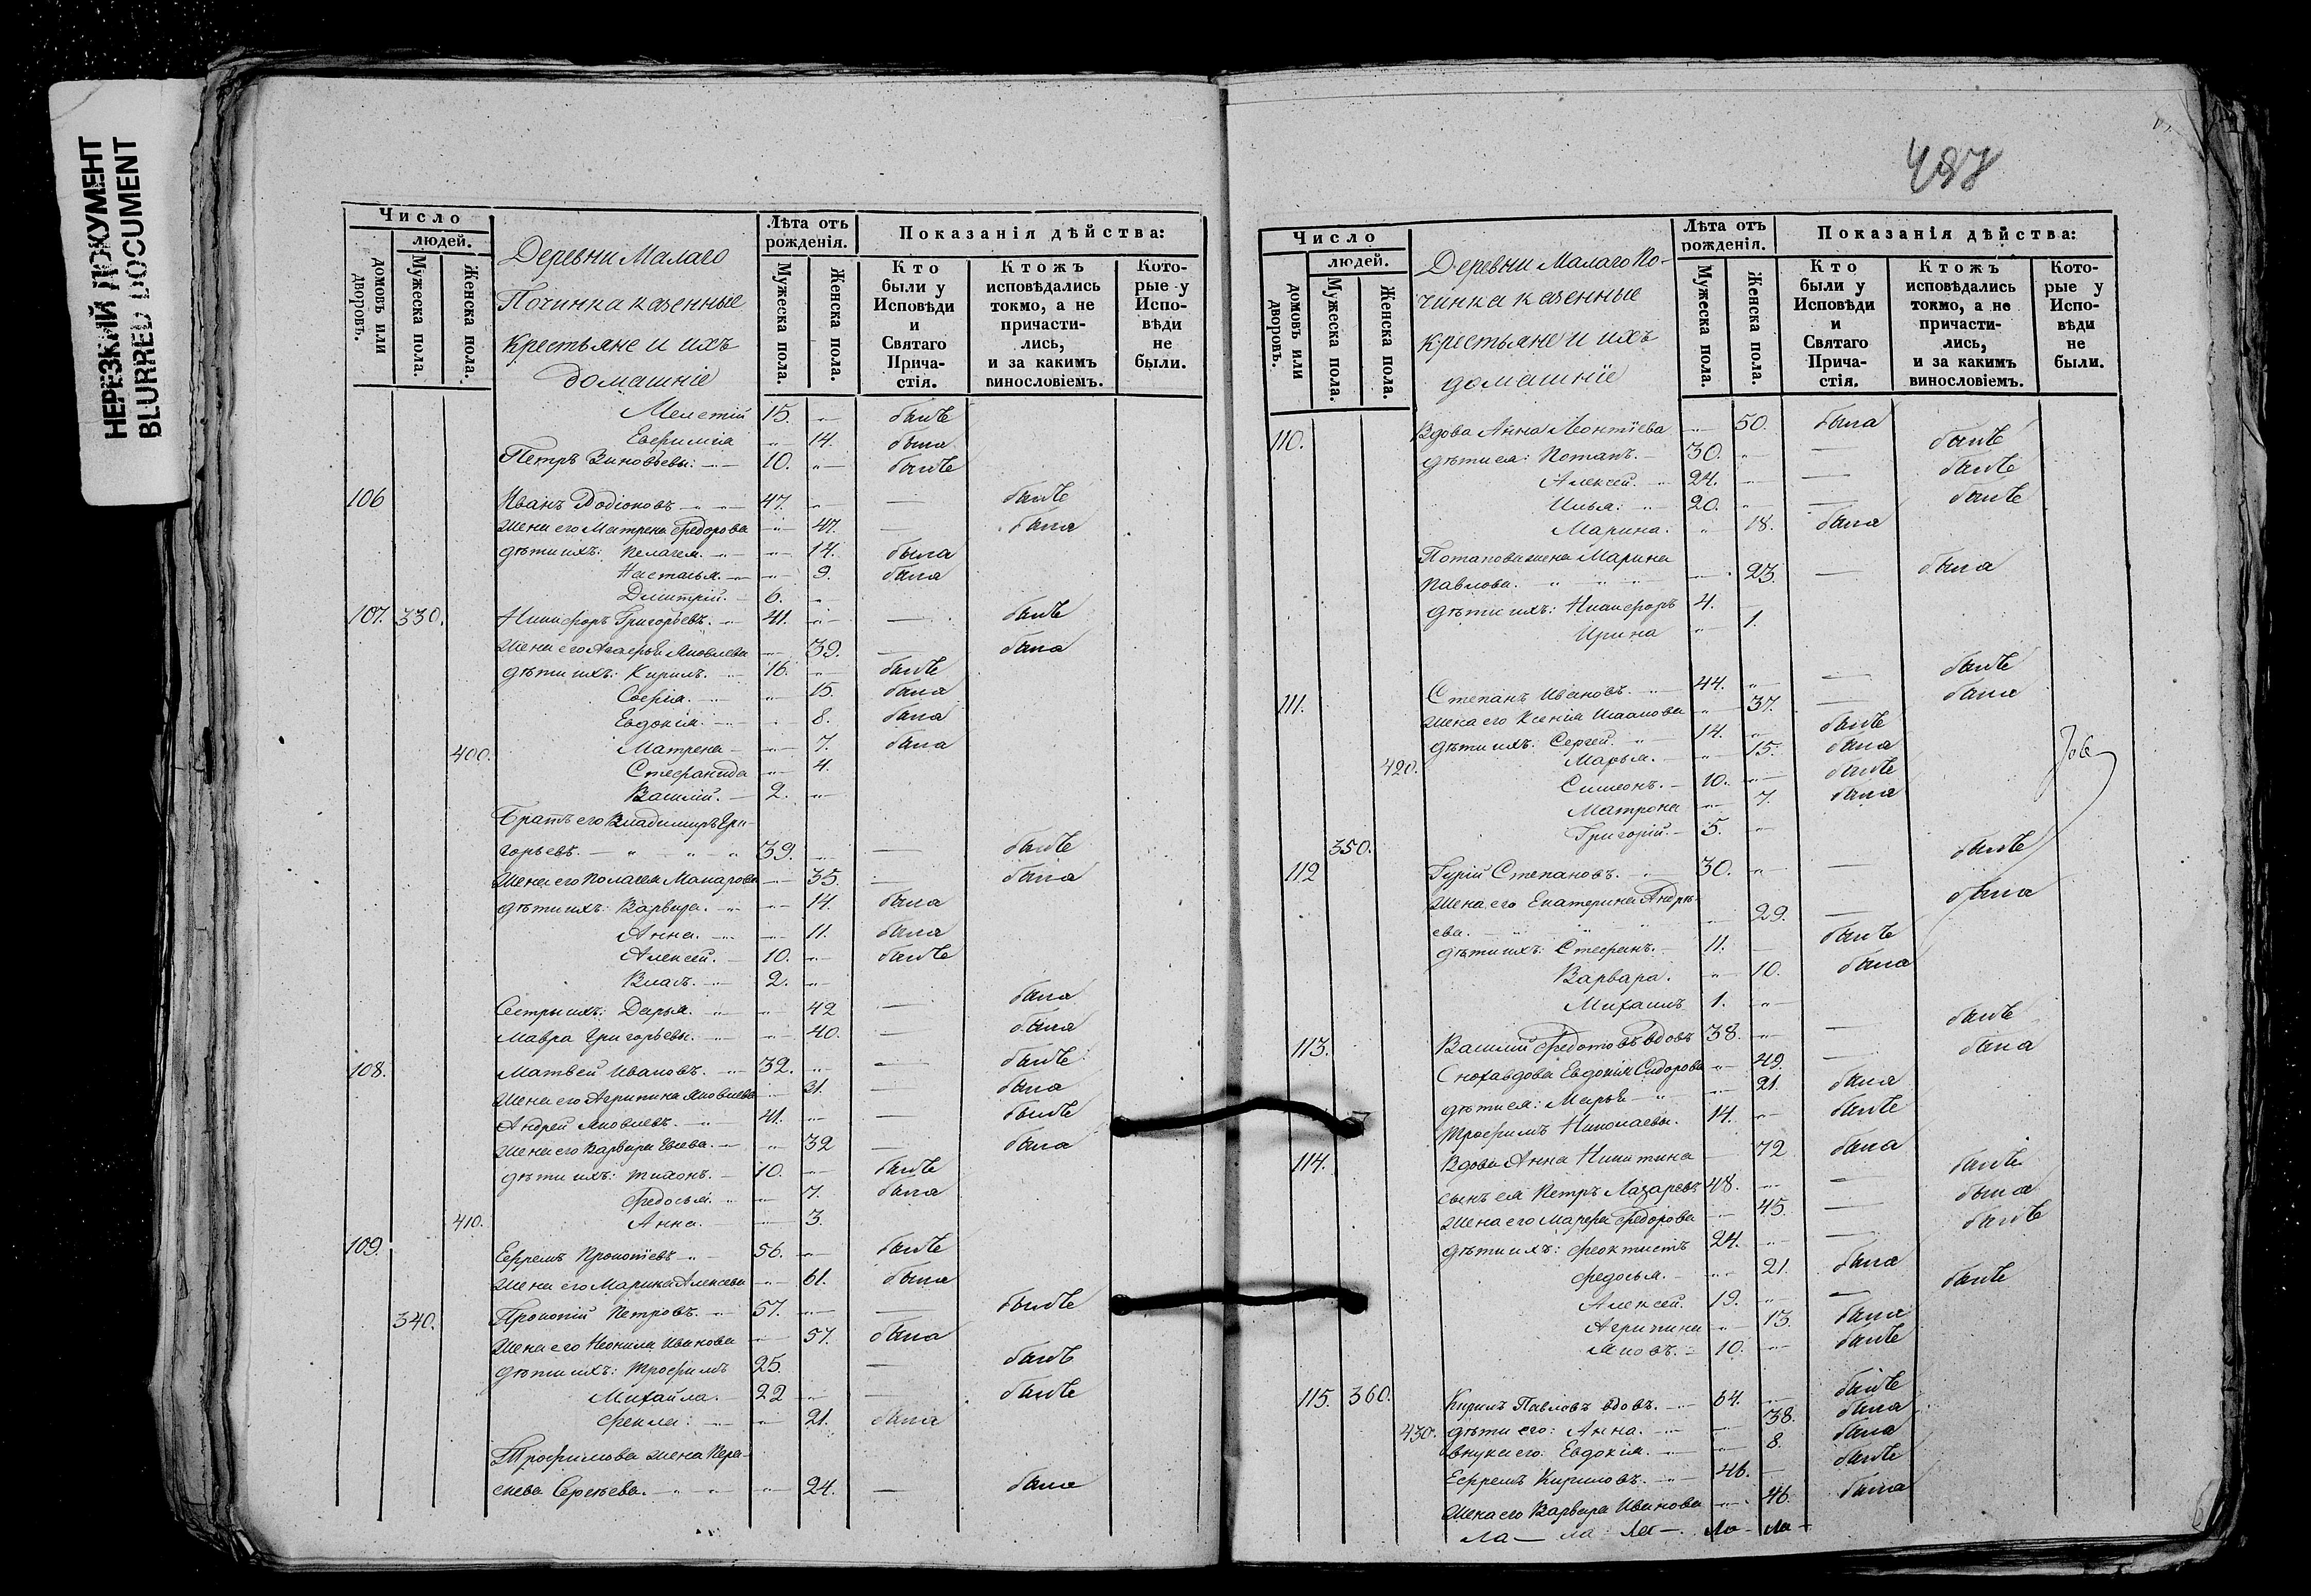 НЕРЕЗКИЙ ДОКУМЕНТ
BLURRED DOCUMENT
Число
людей.
домовъ или дворовъ.
Мужеска пола.
Женска пола.
Деревни Малаго
Починка казенные
крестьяне и ихъ
домашніе
Лѣта отъ рожденія.
Мужеска пола.
Женска пола.
Показанія дѣйства:
Кто были у Исповѣди и Святаго Прича- стія.
Ктожъ исповѣдались токмо, а не причасти- лись, и за какимъ винословіемъ.
Кото- рые у Испо- вѣди не были.
Мелетій 15. былъ
Евфимія 14. была
Петръ Зиновьевы. 10. былъ
106 Иванъ Родіоновъ 47. былъ
Жена его Матрена Федорова 47. была
дѣти ихъ: Пелагея. 14. была
Настасья. 9. была
Димитрій. 6.
107. 330. Никифоръ Григорьевъ. 41. былъ
Жена его Агафья Яковлева 39. была
дѣти ихъ: Кирилъ. 16. былъ
Софія. 15. была
Евдокія. 8. была
400. Матрена 7. была
Стефанида 4.
Василій. 2.
Братъ его Владимиръ Гри-
горьевъ. 39. былъ
Жена его Пелагея Макарова 35. была
дѣти ихъ: Варвара. 14. была
Анна. 11. была
Алексей. 10. былъ
Власъ. 2.
Сестры ихъ: Дарья. 42 была
Мавра Григорьевы. 40. была
108. Матвей Ивановъ. 32. былъ
Жена его Агрипина Яковлева 31. была
Андрей Яковлевъ. 41. былъ
Жена его Варвара 32 была
дѣти ихъ: Тихонъ. 10. былъ
Федосья. 7. была
410. Анна. 3.
109. Ефремъ Прокопіевъ 56. былъ
Жена его Марина Алексеева 61. была
340. Прокопій Петровъ. 57. былъ
Жена его Неонила Иванова 57. была
дѣти ихъ: Трофимъ 25. былъ
Михайла. 22 былъ
Фекла: 21. была
Трофимова жена Пара-
скева Сергѣева. 24. была
487
Число
людей.
домовъ или дворовъ.
Мужеска пола.
Женска пола.
Деревни Малаго По-
чинка казенные
крестьяне и ихъ
домашніе
Лѣта отъ рожденія.
Мужеска пола.
Женска пола.
Показанія дѣйства:
Кто были у Исповѣди и Святаго Прича- стія.
Ктожъ исповѣдались токмо, а не причасти- лись, и за какимъ винословіемъ.
Кото- рые у Испо- вѣди не были.
110. Вдова Анна Леонтіева 50. была
дѣти ея: Потапъ. 30. былъ
Алексей. 24. былъ
Илья. 20. былъ
Марина. 18. была
Потапова жена Марина
Павлова. 23. была
дѣти ихъ: Никифоръ 4.
Ирина 1.
111. Степанъ Ивановъ. 44. былъ
Жена его Ксенія 37. была
дѣти ихъ: Сергей. 14. былъ
420. Марья. 15. была
Симеонъ. 10. былъ
Матрона 7. была
350. Григорій. 5.
112 Гурій Степановъ. 30. былъ
Жена его Екатерина Андре-
ева. 29. была
дѣти ихъ: Стефанъ. 11. былъ
Варвара. 10. была
Михаилъ 1.
113. Василій Федотовъ вдовъ 38. былъ
Сноха вдова Евдокія Сидорова 49. была
дѣти ея: Марья 21. была
Трофимъ Николаевы. 14. былъ
114. Вдова Анна Никитина 72 была
сынъ ея Петръ Лазаревъ 48. былъ
Жена его Марфа Федорова 45. была
дѣти ихъ: Феоктистъ 24. былъ
Федосья. 21. была
Алексей. 19. былъ
Агрипина 13. была
Яковъ. 10. былъ
115. 360. Кирилъ Павловъ вдовъ. 64. былъ
430. дѣти его: Анна. 38. была
внука его: Евдокія. 8. была
Ефремъ Кириловъ. 46. былъ
Жена его Варвара Иванова 46. была